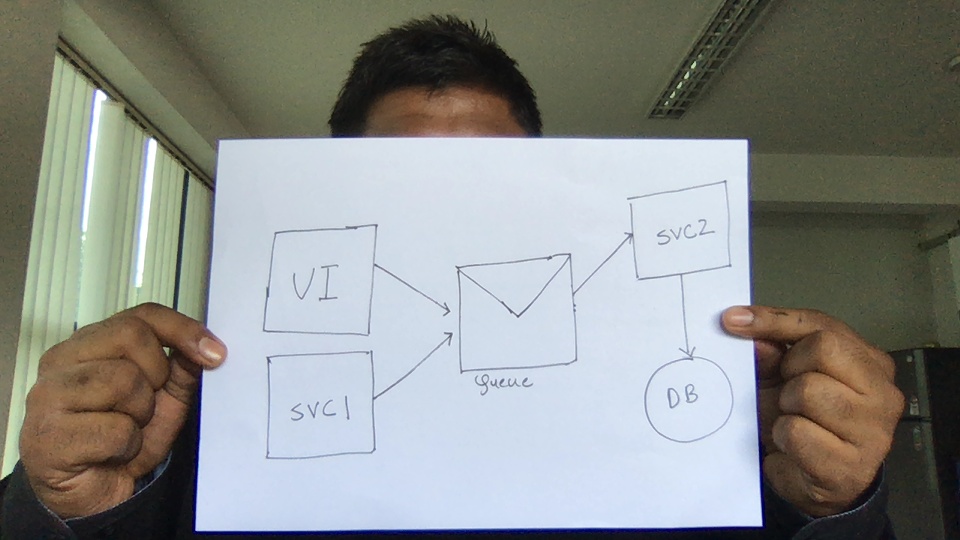 UI
SVC1
Queue
SVC2
DB